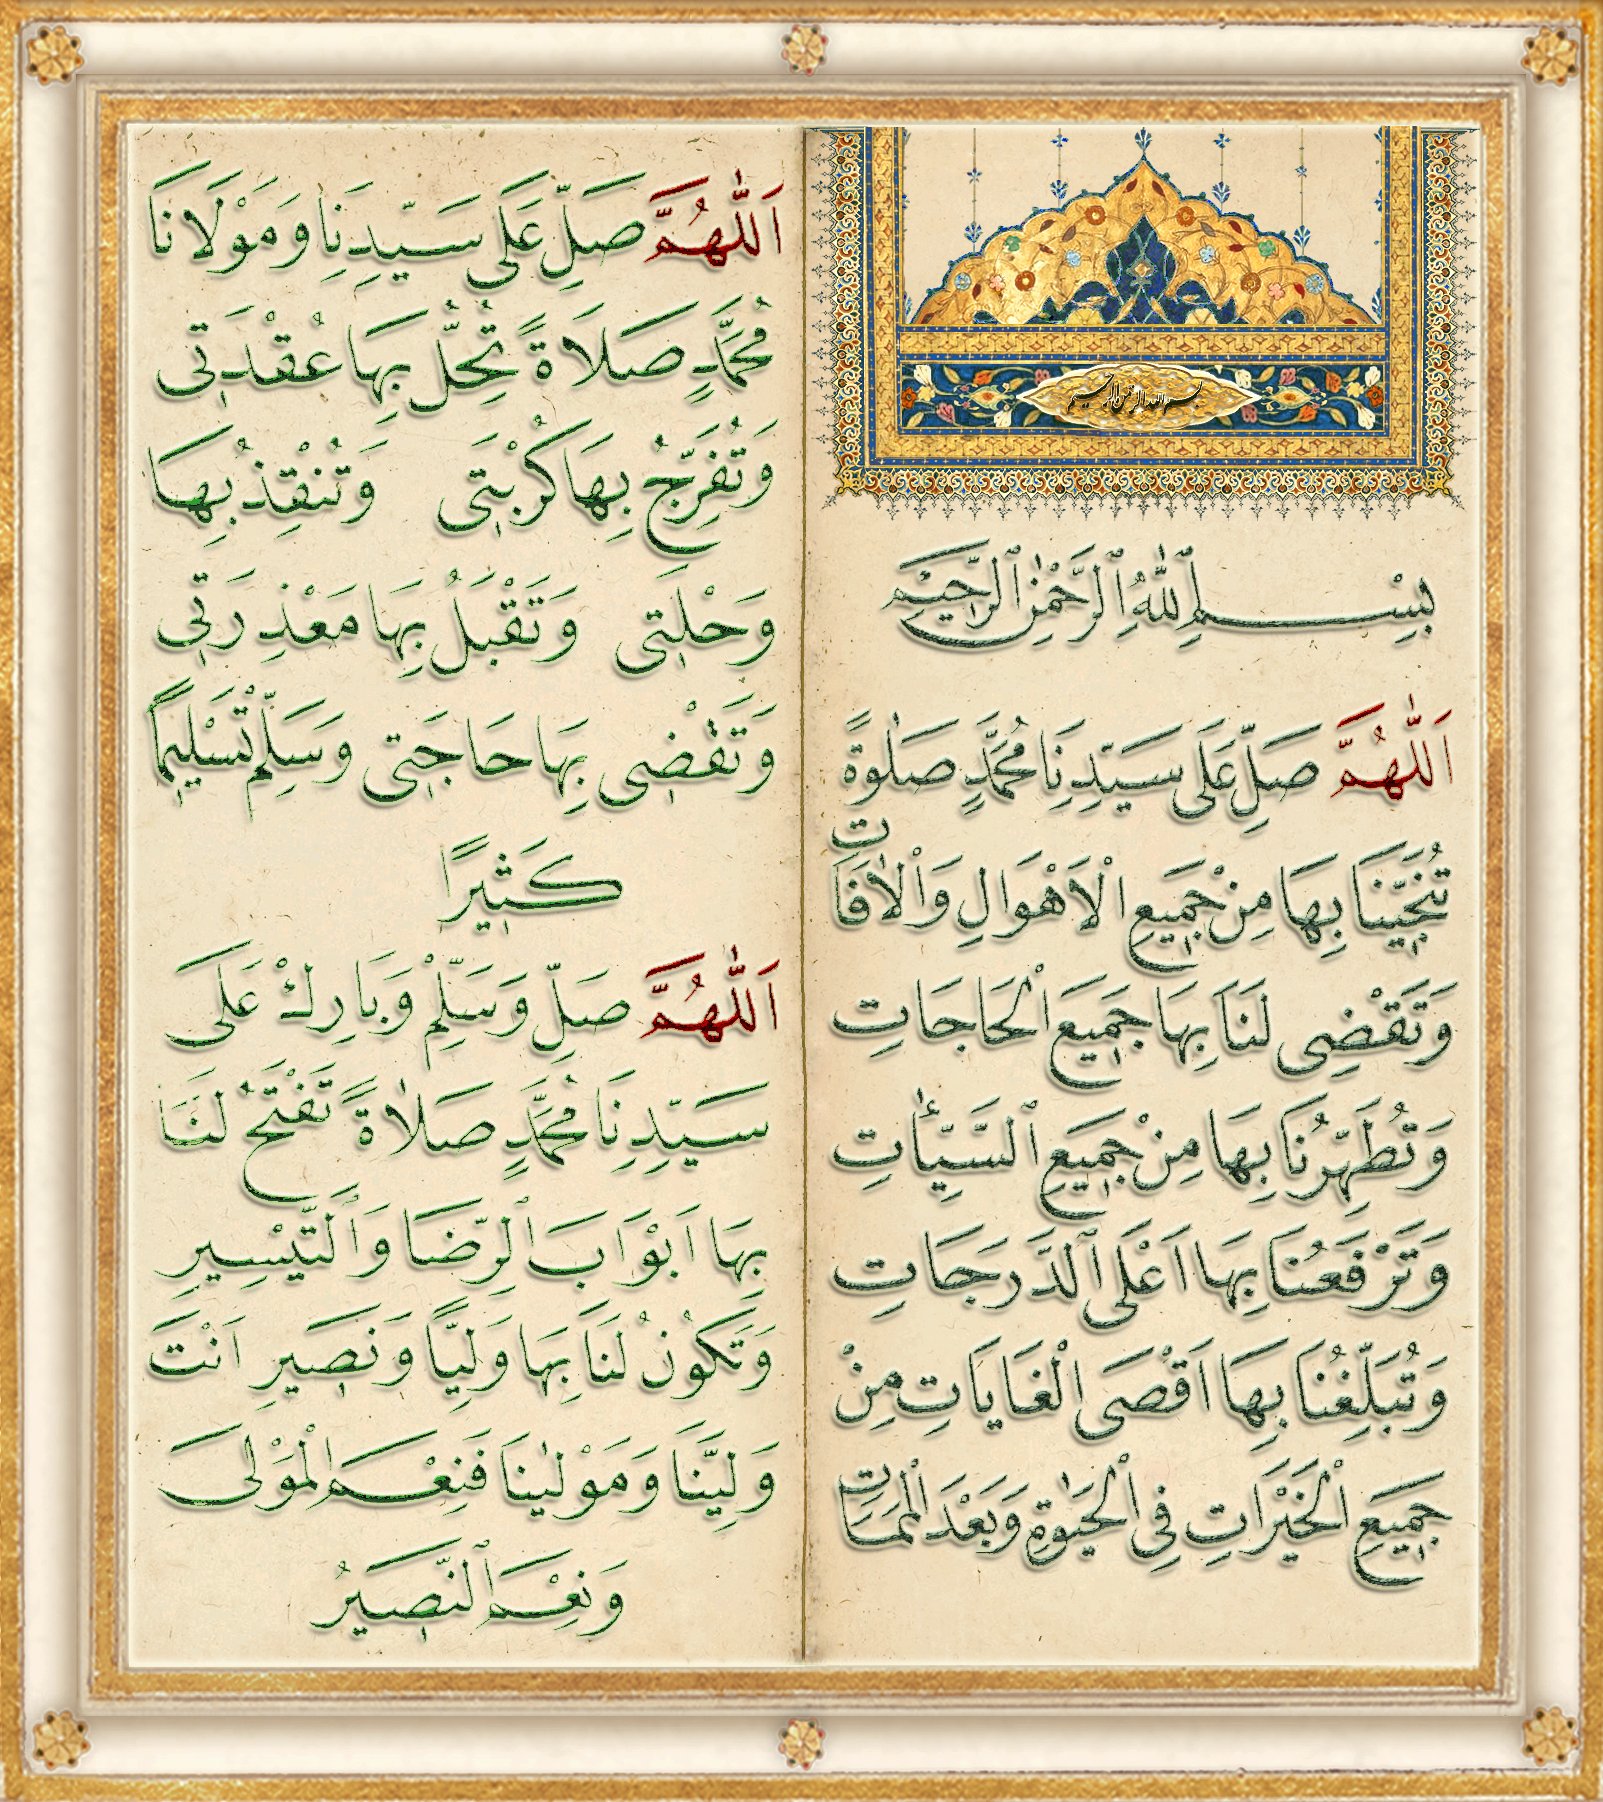 بسم الله الرحمن الرحيم
بِسْمِ ٱللّٰهِ ٱلرَّحْمٰنِ ٱلرَّحِيْمِ
اَللّٰهُمَّ صَلِّ عَلَى سَيِّدِنَا مُحَمَّدٍ صَلٰوةً
تُنَجِّيْنَا بِهَا مِنْ جَمِيعِ الْاَهْوَالِ وَالْاٰفَاتِ
وَتَقْضِى لَنَا بِهَا جَمِيعَ الْحَاجَاتِ
وَتُطَهِّرُنَا بِهَا مِنْ جَمِيعِ ٱلسَّيِّاٰتِ
وَتَرْفَعُنَا بِهَا اَعْلَى ٱلدَّرَجَاتِ
وَتُبَلِّغُنَا بِهَا اَقْصَى الْغَايَاتِ مِنْ
جَمِيعِ الْخَيْرَاتِ فِى الْحَيٰوةِ وَبَعْدَ الْمَمَاتِ
اَللّٰهُمَّ صَلِّ عَلَى سَيِّدِنَا وَمَوْلَانَا
مُحَمَّدٍ صَلَاةً تُحَلُّ بِهَا عُقْدَتِى
وَتُفَرِّجُ بِهَا كُرْبَتِى وَتُنْقِذُ بِهَا
وَحْلَتِى وَتَقْبَلُ بِهَا مَعْذِرَتِى
وَتَقْضِى بِهَا حَاجَتِى وَسَلِّمْ تَسْلِيمًا
كَثِيرًا
اَللّٰهُمَّ صَلِّ وَسَلِّمْ وَبَارِكْ عَلَى
سَيِّدِنَا مُحَمَّدٍ صَلَاةً تَفْتَحُ لَنَا
بِهَا اَبْوَابَ ٱلرِّضَا وَٱلتَّيْسِيرِ
وَتَكُونُ لَنَا بِهَا وَلِيًّا وَنَصِيرِ اَنْتَ
وَلِيُّنَا وَمَوْلٰينَا فَنِعْمَ الْمَوْلَى
وَنِعْمَ ٱلنَّصِيرُ